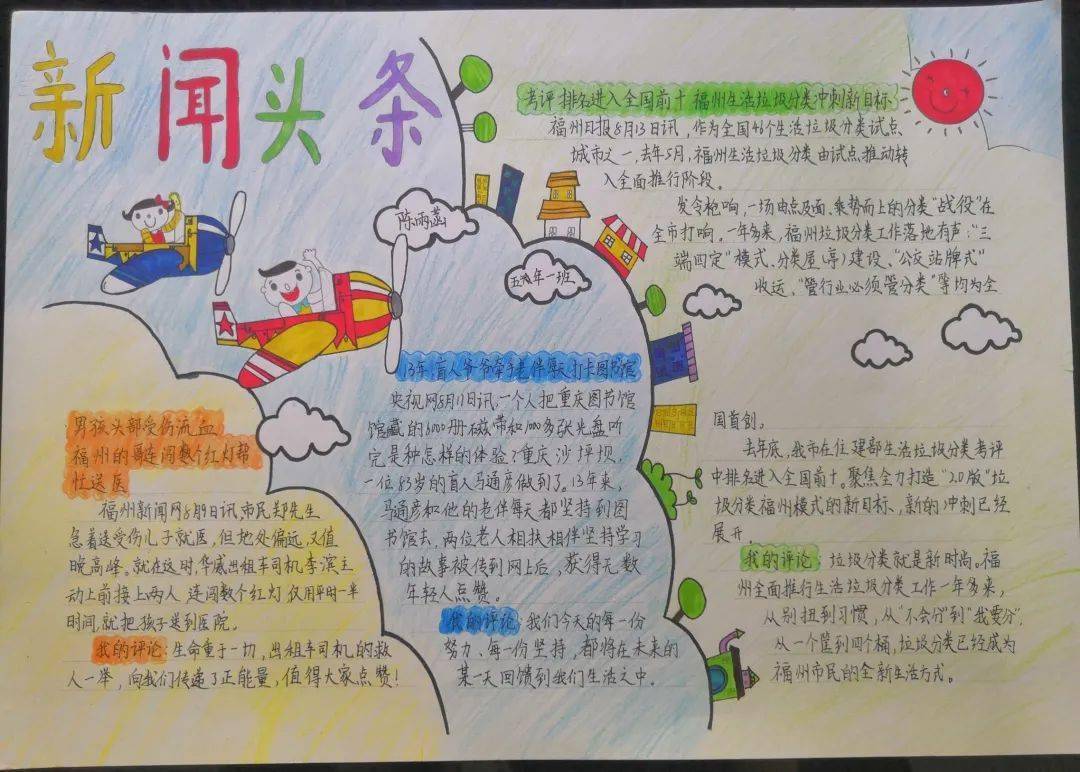 新闻头条
陈雨菡
五年一班
男孩头部受伤流血
福州的哥连闯数个红灯帮
忙送医
福州新闻网8月9日讯,市民郑先生
急着送受伤儿子就医,但地处偏远,又值
晚高峰。就在这时,华威出租车司机李滨主
动上前接上两人,连闯数个红灯,仅用平时一半
时间,就把孩子送到医院。
我的评论:生命重于一切,出租车司机的救
人一举,向我们传递了正能量,值得大家点赞!
13年,盲人爷爷牵手老伴每天打卡图书馆
央视网8月11日讯,一个人把重庆图书馆
馆藏的6000册磁带和1000多张光盘听
完是种怎样的体验?重庆沙坪坝,
一位83岁的盲人马通彦做到了。13年来,
马通彦和他的老伴每天都坚持到图
书馆去,两位老人相扶相伴坚持学习
的故事被传到网上后,获得无数
年轻人点赞。
我的评论:我们今天的每一份
努力、每一份坚持,都将在未来的
某一天回馈到我们生活之中。
考评排名进入全国前十 福州生活垃圾分类冲刺新目标
福州日报8月13日讯,作为全国46个生活垃圾分类试点
城市之一,去年5月,福州生活垃圾分类由试点推动转
入全面推行阶段。
发令枪响,一场由点及面、乘势而上的分类“战役”在
全市打响。一年多来,福州垃圾分类工作落地有声:“三
端四定”模式、分类屋(亭)建设、“公交站牌式”
收运、“管行业必须管分类”等均为全
国首创。
去年底,我市在住建部生活垃圾分类考评
中排名进入全国前十。聚焦全力打造“2.0版”垃
圾分类福州模式的新目标,新的冲刺已经
展开。
我的评论:垃圾分类就是新时尚。福
州全面推行生活垃圾分类工作一年多来,
从别扭到习惯,从“不会分”到“我要分”,
从一个筐到四个桶,垃圾分类已经成为
福州市民的全新生活方式。